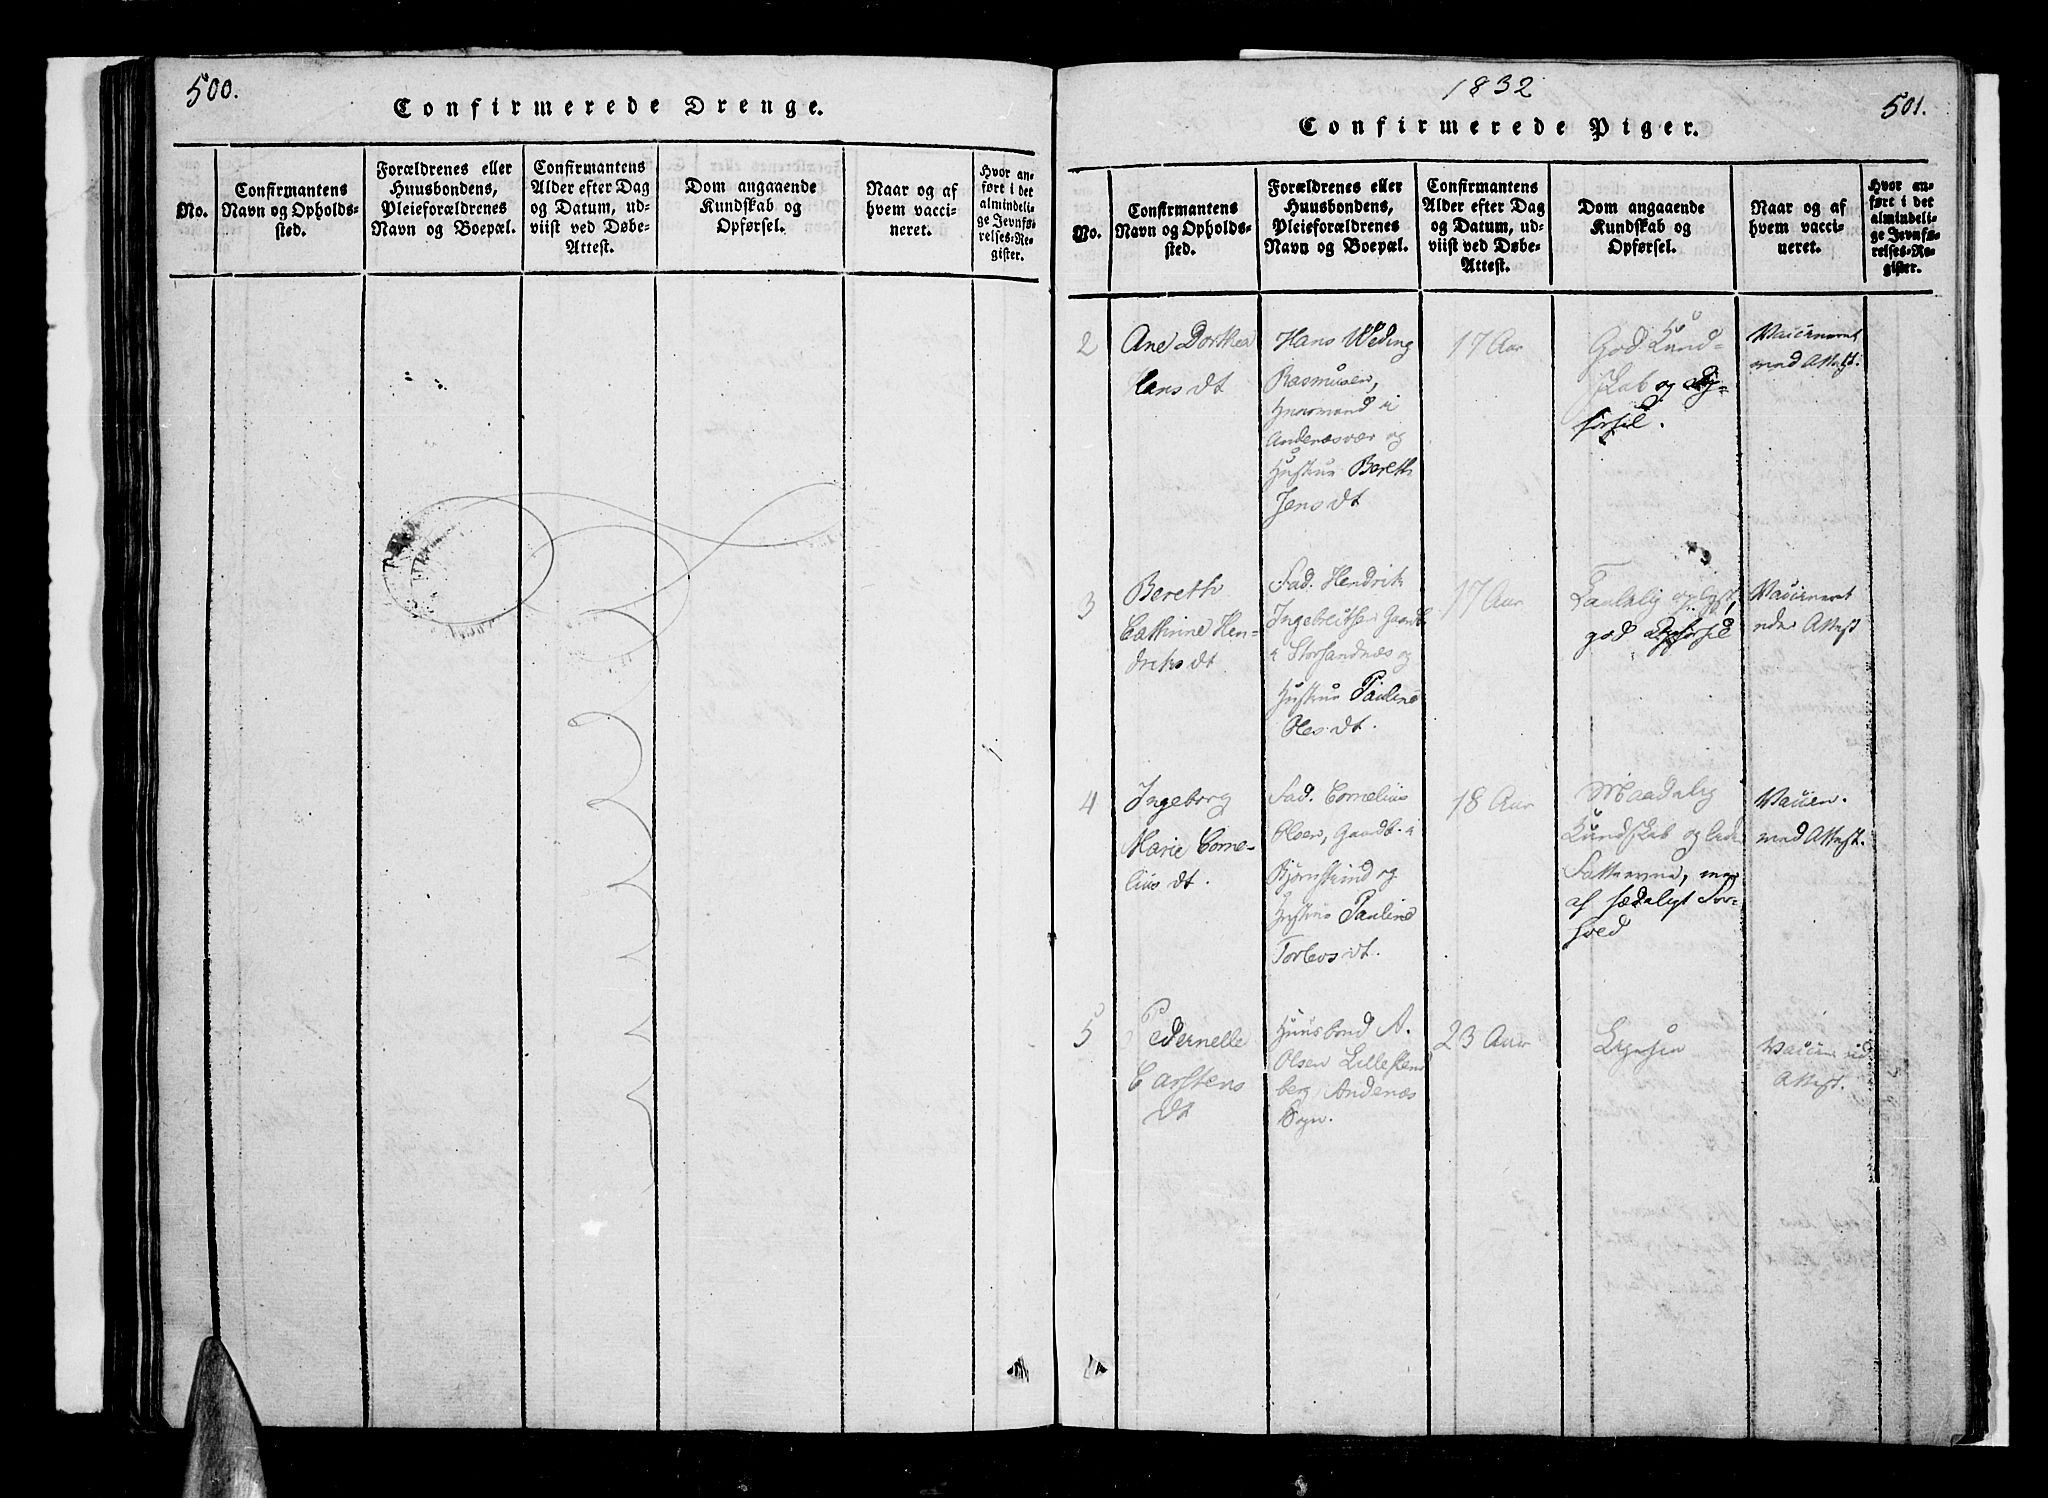 500.
Confirmerede Drenge.
No.
Confirmantens
Navn og Opholds-
sted.
Forældrenes eller
Huusbondens,
Pleieforældrenes
Navn og Boepæl.
Confirmantens
Alder efter Dag
og Datum, ud-
viist ved Døbe-
Attest.
Dom angaaende
Kundskab og
Opførsel.
Naar og af
hvem vacci-
neret.
Hvor an-
ført i det
almindeli-
ge Jevnfø-
relses-Re-
gister.
1832
501.
Confirmerede Piger.
No.
Confirmantens
Navn og Opholds-
sted.
Forældrenes eller
Huusbondens,
Pleieforældrenes
Navn og Boepæl.
Confirmantens
Alder efter Dag
og Datum, ud-
viist ved Døbe-
Attest.
Dom angaaende
Kundskab og
Opførsel.
Naar og af
hvem vacci-
neret.
Hvor an-
ført i det
almindeli-
ge Jevnfø-
relses-Re-
gister.
2
Ane Dorthea
Hans dt
Hans Weding
Rasmusen,
i
Andenæsvær og
Hustrue Bereth
Jens dt
17 Aar
God Kund-
skab og Op-
førsel.
Vaccineret
med Attest.
3
Bereth
Cathrine Hen-
driks dt
Fad. Hendrik
Ingebreitsen Gaardb.
i Storsandnæs og
Hustrue Pauline
Oles dt.
17 Aar
Taalelig oplyst,
god Opførsel
Vaccineret
Attest
4
Ingeborg
Marie Corne-
lius dt.
Fad. Cornelius
Olsen, Gaardb. i
Bjørnskind og
Hustrue Pauline
Torlevs dt.
18 Aar
Maadelig
Kundskab og
af sædeligt For-
hold
Vaccin.
med Attest.
5
Pedernelle
Carstens
dt
Huusbond A.
Olsen
Andenæs
Sogn.
23 Aar
Ligesaa
Vaccin.
Attest.